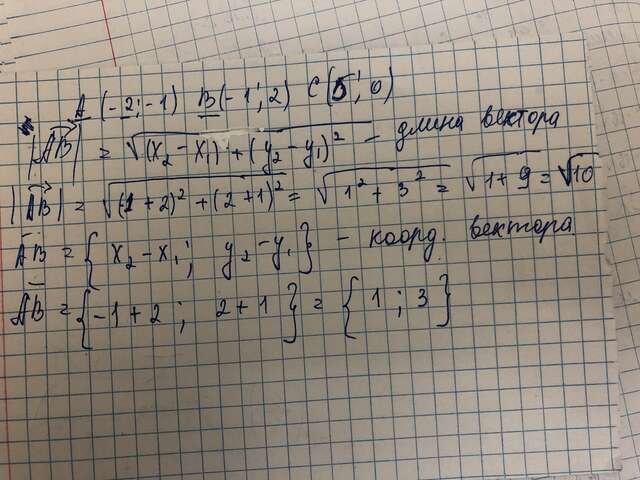 A (-2; -1) B(-1; 2) C(5; 0)
|AB| = √(x₂ - x₁)² + (y₂ - y₁)² - длина вектора
|AB| = √(-1 + 2)² + (2 + 1)² = √1² + 3² = √1 + 9 = √10
AB = { x₂ - x₁; y₂ - y₁ } - коорд. вектора
AB = { -1 + 2; 2 + 1 } = { 1; 3 }